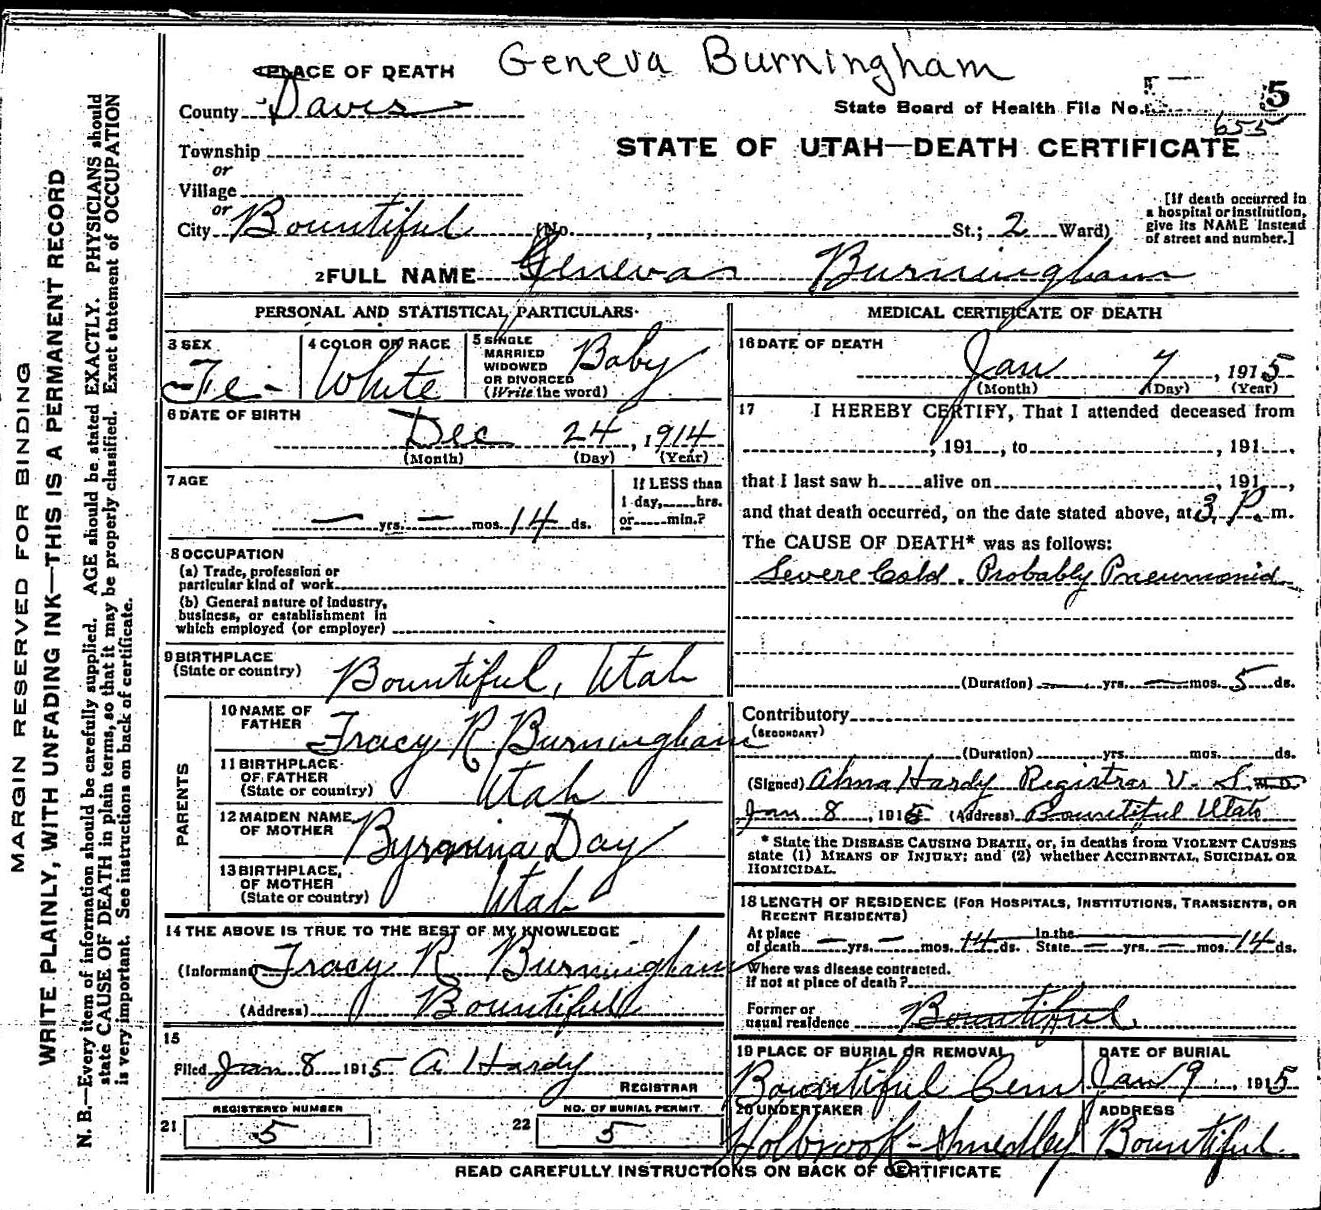 Geneva Burningham
PLACE OF DEATH
County Davis
State Board of Health File No. 5
655
Township
or
Village
or
City Bountiful (No. , St.; 2 Ward)
STATE OF UTAH—DEATH CERTIFICATE
[If death occurred in
a hospital or institution,
give its NAME instead
of street and number.]
2 FULL NAME Geneva Burningham
PERSONAL AND STATISTICAL PARTICULARS
3 SEX
Fe
4 COLOR OR RACE
White
5 SINGLE
MARRIED
WIDOWED
OR DIVORCED
(Write the word)
Baby
6 DATE OF BIRTH
Dec 24, 1914
(Month) (Day) (Year)
7 AGE
— yrs. — mos. 14 ds.
If LESS than
1 day, hrs.
or min.?
8 OCCUPATION
(a) Trade, profession or
particular kind of work
(b) General nature of industry,
business, or establishment in
which employed (or employer)
9 BIRTHPLACE
(State or country) Bountiful, Utah
PARENTS
10 NAME OF
FATHER Tracy R Burningham
11 BIRTHPLACE
OF FATHER
(State or country) Utah
12 MAIDEN NAME
OF MOTHER Day
13 BIRTHPLACE
OF MOTHER
(State or country) Utah
14 THE ABOVE IS TRUE TO THE BEST OF MY KNOWLEDGE
(Informant) Tracy R Burningham
(Address) Bountiful
15
Filed Jan 8 1915 A Hardy
REGISTRAR
21 REGISTERED NUMBER
5
22 NO. OF BURIAL PERMIT
5
MEDICAL CERTIFICATE OF DEATH
16 DATE OF DEATH
Jan 7, 1915
(Month) (Day) (Year)
17 I HEREBY CERTIFY, That I attended deceased from
, 191 , to , 191 ,
that I last saw h alive on , 191 ,
and that death occurred, on the date stated above, at 3 P. m.
The CAUSE OF DEATH* was as follows:
Severe Cold. Probably Pneumonia
(Duration) — yrs. — mos. 5 ds.
Contributory
(SECONDARY)
(Duration) yrs. mos. ds.
(Signed) Alma Hardy Registrar V. S. M.D.
Jan 8, 1915 (Address) Bountiful Utah
* State the DISEASE CAUSING DEATH, or, in deaths from VIOLENT CAUSES
state (1) MEANS OF INJURY; and (2) whether ACCIDENTAL, SUICIDAL OR
HOMICIDAL.
18 LENGTH OF RESIDENCE (FOR HOSPITALS, INSTITUTIONS, TRANSIENTS, OR
RECENT RESIDENTS)
At place In the
of death — yrs. — mos. 14 ds. State — yrs. — mos. 14 ds.
Where was disease contracted.
If not at place of death?
Former or
usual residence Bountiful
19 PLACE OF BURIAL OR REMOVAL
Bountiful Cem
DATE OF BURIAL
Jan 9, 1915
20 UNDERTAKER
Holbrook-Smedley
ADDRESS
Bountiful
READ CAREFULLY INSTRUCTIONS ON BACK OF CERTIFICATE
MARGIN RESERVED FOR BINDING
WRITE PLAINLY, WITH UNFADING INK—THIS IS A PERMANENT RECORD
N. B.—Every item of information should be carefully supplied. AGE should be stated EXACTLY. PHYSICIANS should
state CAUSE OF DEATH in plain terms, so that it may be properly classified. Exact statement of OCCUPATION
is very important. See instructions on back of certificate.